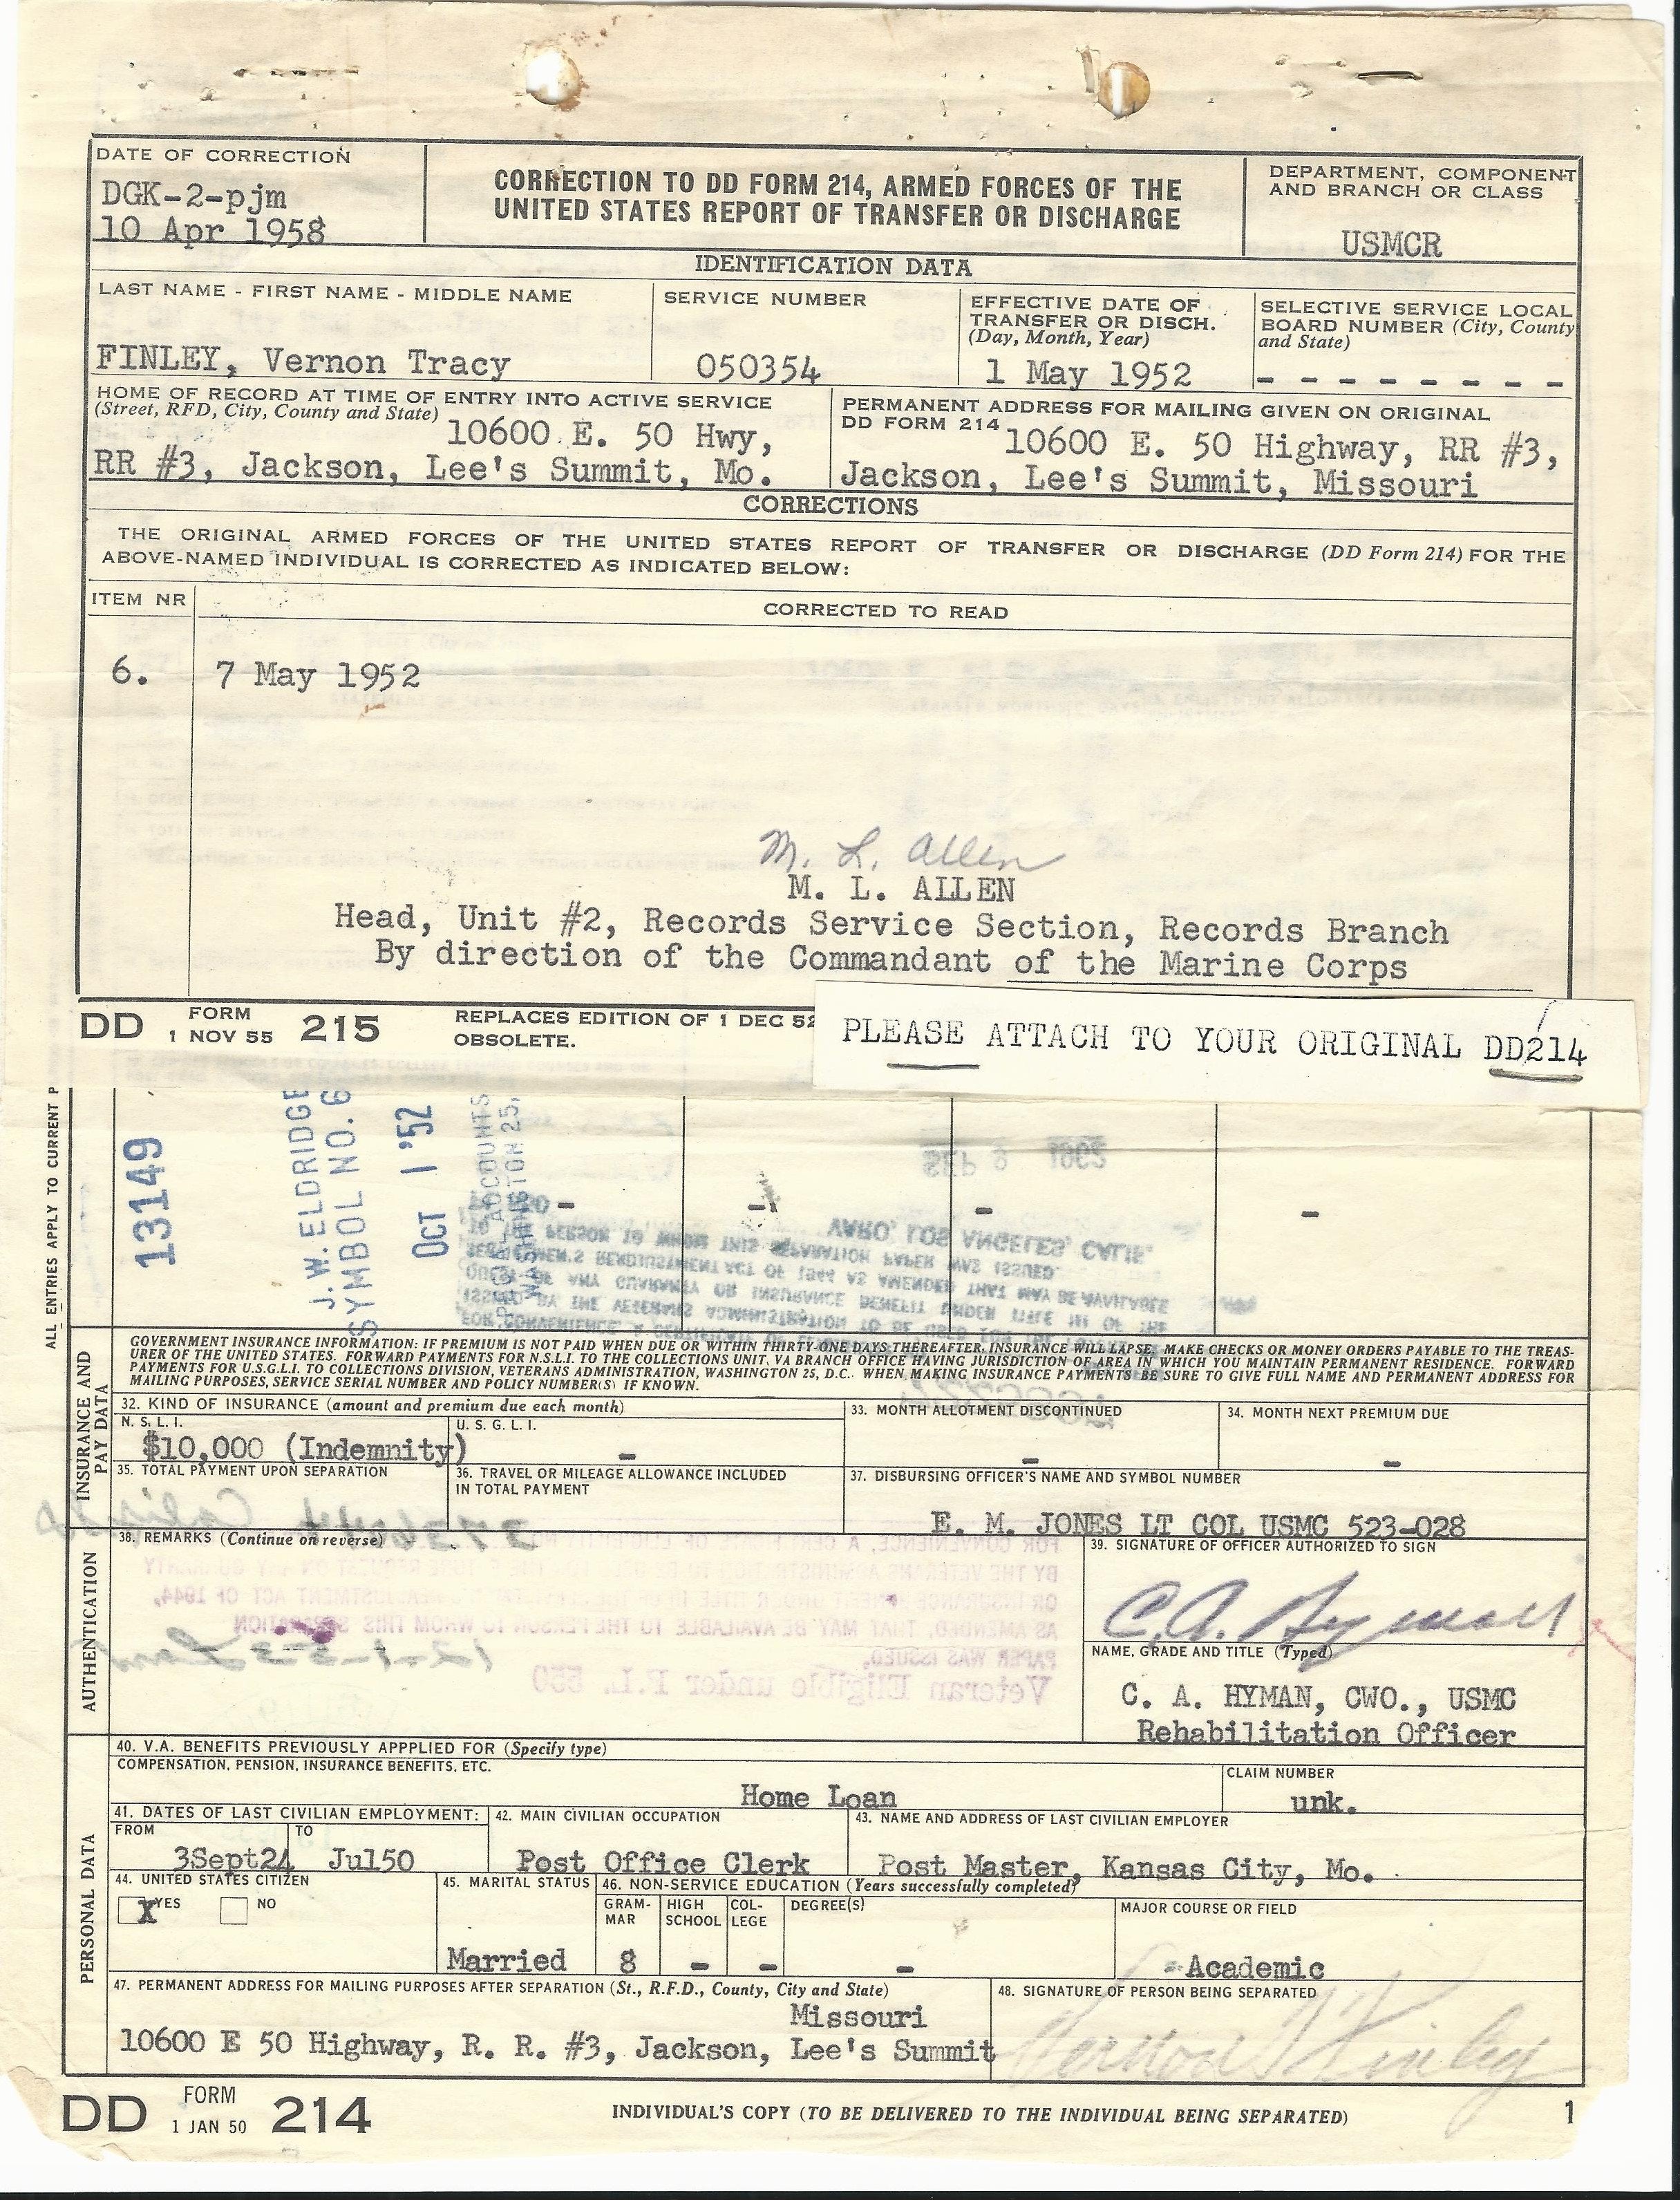 DATE OF CORRECTION
DGK-2-pjm
10 Apr 1958
CORRECTION TO DD FORM 214, ARMED FORCES OF THE
UNITED STATES REPORT OF TRANSFER OR DISCHARGE
DEPARTMENT, COMPONENT
AND BRANCH OR CLASS
USMCR
IDENTIFICATION DATA
LAST NAME - FIRST NAME - MIDDLE NAME
FINLEY, Vernon Tracy
SERVICE NUMBER
050354
EFFECTIVE DATE OF
TRANSFER OR DISCH.
(Day, Month, Year)
1 May 1952
SELECTIVE SERVICE LOCAL
BOARD NUMBER (City, County
and State)
- - - - - - - -
HOME OF RECORD AT TIME OF ENTRY INTO ACTIVE SERVICE
(Street, RFD, City, County and State)
10600 E. 50 Hwy,
RR #3, Jackson, Lee's Summit, Mo.
PERMANENT ADDRESS FOR MAILING GIVEN ON ORIGINAL
DD FORM 214
10600 E. 50 Highway, RR #3,
Jackson, Lee's Summit, Missouri
CORRECTIONS
THE ORIGINAL ARMED FORCES OF THE UNITED STATES REPORT OF TRANSFER OR DISCHARGE (DD Form 214) FOR THE
ABOVE-NAMED INDIVIDUAL IS CORRECTED AS INDICATED BELOW:
ITEM NR
CORRECTED TO READ
6. 7 May 1952
M. L. Allen
M. L. ALLEN
Head, Unit #2, Records Service Section, Records Branch
By direction of the Commandant of the Marine Corps
DD FORM 1 NOV 55 215
REPLACES EDITION OF 1 DEC 52
OBSOLETE.
PLEASE ATTACH TO YOUR ORIGINAL DD214
ALL ENTRIES APPLY TO CURRENT P
13149
J. W. ELDRIDGE
SYMBOL NO. 6
OCT 1 '52
ACCOUNTS
WASHINGTON 25,
- - - -
SEP 9 1952
VARO, LOS ANGELES, CALIF.
TO THE PERSON TO WHOM THIS SEPARATION PAPER WAS ISSUED.
INSURANCE AND
PAY DATA
GOVERNMENT INSURANCE INFORMATION: IF PREMIUM IS NOT PAID WHEN DUE OR WITHIN THIRTY-ONE DAYS THEREAFTER, INSURANCE WILL LAPSE. MAKE CHECKS OR MONEY ORDERS PAYABLE TO THE TREAS-
URER OF THE UNITED STATES. FORWARD PAYMENTS FOR N.S.L.I. TO THE COLLECTIONS UNIT, VA BRANCH OFFICE HAVING JURISDICTION OF AREA IN WHICH YOU MAINTAIN PERMANENT RESIDENCE. FORWARD
PAYMENTS FOR U.S.G.L.I. TO COLLECTIONS DIVISION, VETERANS ADMINISTRATION, WASHINGTON 25, D.C. WHEN MAKING INSURANCE PAYMENTS BE SURE TO GIVE FULL NAME AND PERMANENT ADDRESS FOR
MAILING PURPOSES, SERVICE SERIAL NUMBER AND POLICY NUMBER(S) IF KNOWN.
32. KIND OF INSURANCE (amount and premium due each month)
N. S. L. I.
$10,000 (Indemnity)
U. S. G. L. I.
-
33. MONTH ALLOTMENT DISCONTINUED
-
34. MONTH NEXT PREMIUM DUE
-
35. TOTAL PAYMENT UPON SEPARATION
36. TRAVEL OR MILEAGE ALLOWANCE INCLUDED
IN TOTAL PAYMENT
37. DISBURSING OFFICER'S NAME AND SYMBOL NUMBER
E. M. JONES LT COL USMC 523-028
AUTHENTICATION
38. REMARKS (Continue on reverse)
FOR CONVENIENCE, A CERTIFICATE OF ELIGIBILITY
AS AMENDED, THAT MAY BE AVAILABLE TO THE PERSON TO WHOM THIS SEPARATION
PAPER WAS ISSUED.
Veteran Eligible under P.L. 550
39. SIGNATURE OF OFFICER AUTHORIZED TO SIGN
C. A. Hyman
NAME, GRADE AND TITLE (Typed)
C. A. HYMAN, CWO., USMC
Rehabilitation Officer
PERSONAL DATA
40. V.A. BENEFITS PREVIOUSLY APPPLIED FOR (Specify type)
COMPENSATION, PENSION, INSURANCE BENEFITS, ETC.
Home Loan
CLAIM NUMBER
unk.
41. DATES OF LAST CIVILIAN EMPLOYMENT:
FROM
3Sept24
TO
Jul50
42. MAIN CIVILIAN OCCUPATION
Post Office Clerk
43. NAME AND ADDRESS OF LAST CIVILIAN EMPLOYER
Post Master, Kansas City, Mo.
44. UNITED STATES CITIZEN
X YES NO
45. MARITAL STATUS
Married
46. NON-SERVICE EDUCATION (Years successfully completed)
GRAM-
MAR
8
HIGH
SCHOOL
-
COL-
LEGE
-
DEGREE(S)
-
MAJOR COURSE OR FIELD
-Academic
47. PERMANENT ADDRESS FOR MAILING PURPOSES AFTER SEPARATION (St., R.F.D., County, City and State)
Missouri
10600 E 50 Highway, R. R. #3, Jackson, Lee's Summit
48. SIGNATURE OF PERSON BEING SEPARATED
Vernon T Finley
DD FORM 1 JAN 50 214
INDIVIDUAL'S COPY (TO BE DELIVERED TO THE INDIVIDUAL BEING SEPARATED)
1